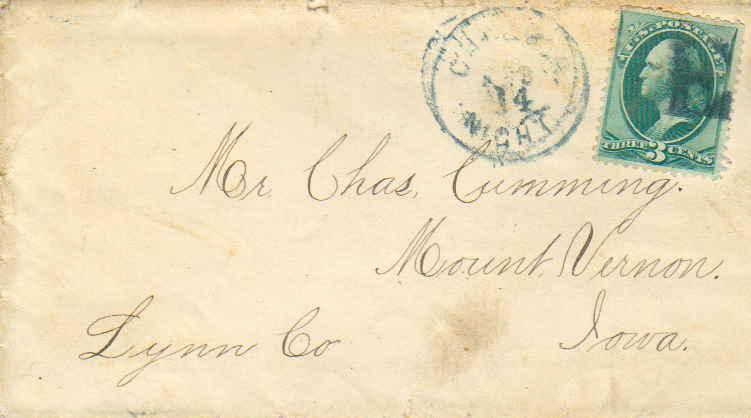 14
U.S. POSTAGE
THREE 3 CENTS
Mr. Chas. Cumming.
Mount Vernon.
Lynn Co Iowa.